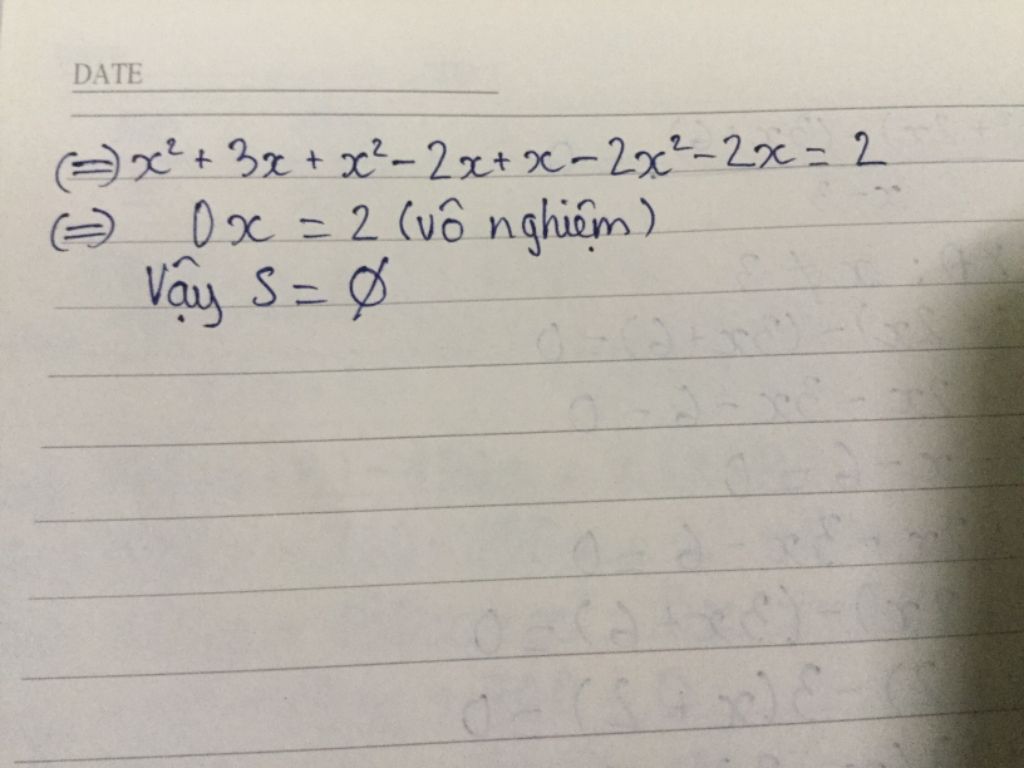 DATE
(=) x² + 3x + x² - 2x + x - 2x² - 2x = 2
(=) 0x = 2 (vô nghiệm)
Vậy S = ∅